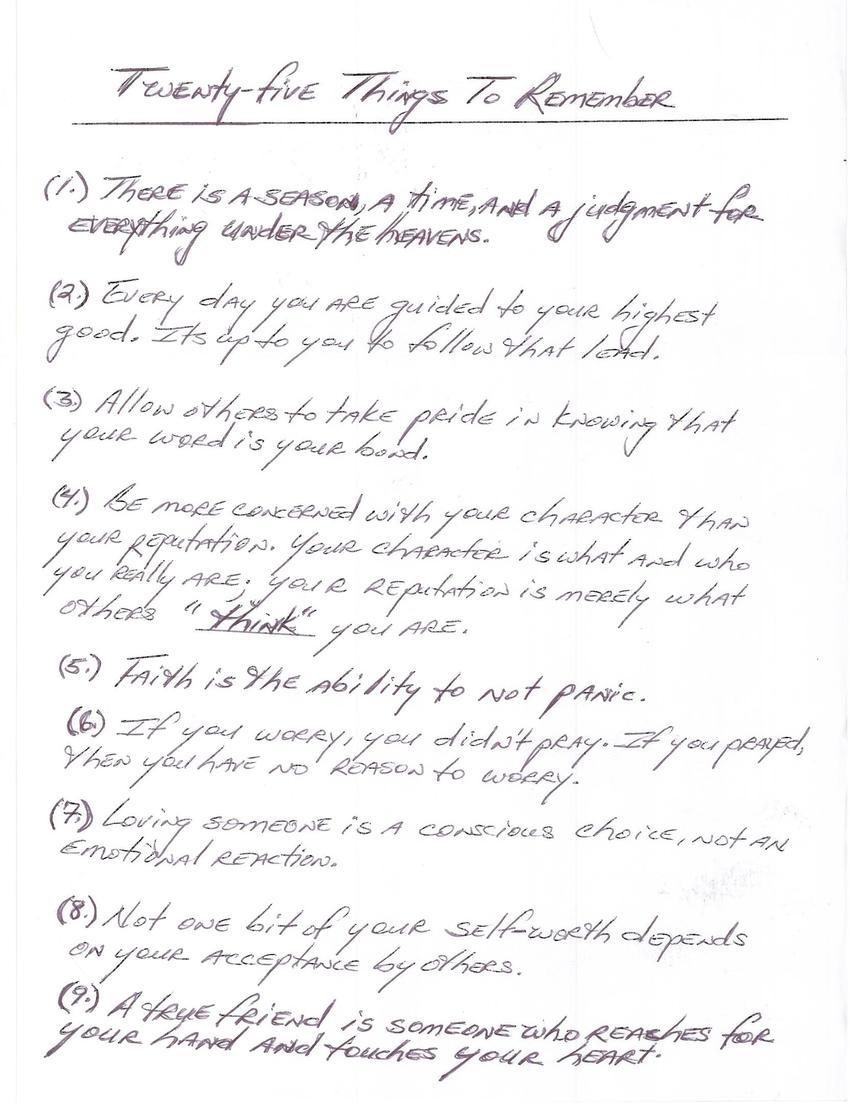 Twenty-five Things To Remember
(1.) There is a season, a time, and a judgment for
everything under the heavens.
(2.) Every day you are guided to your highest
good. Its up to you to follow that lead.
(3.) Allow others to take pride in knowing that
your word is your bond.
(4.) Be more concerned with your character than
your reputation. Your character is what and who
you really are; your reputation is merely what
others "think" you are.
(5.) Faith is the ability to not panic.
(6.) If you worry, you didn't pray. If you prayed,
then you have no reason to worry.
(7.) Loving someone is a conscious choice, not an
emotional reaction.
(8.) Not one bit of your self-worth depends
on your acceptance by others.
(9.) A true friend is someone who reaches for
your hand and touches your heart.